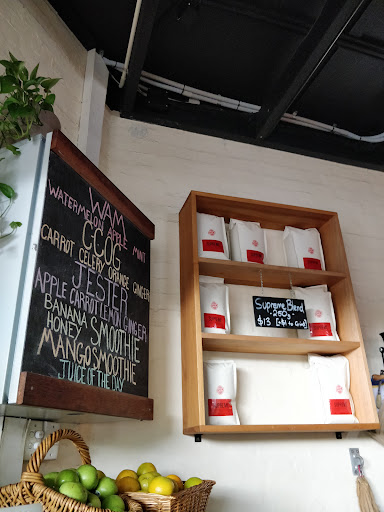 WAM
WATERMELON APPLE MINT
CCOG
CARROT CELERY ORANGE GINGER
JESTER
APPLE CARROT LEMON GINGER
BANANA SMOOTHIE
HONEY
MANGO SMOOTHIE
JUICE OF THE DAY
Supreme Blend
- 250g -
$13